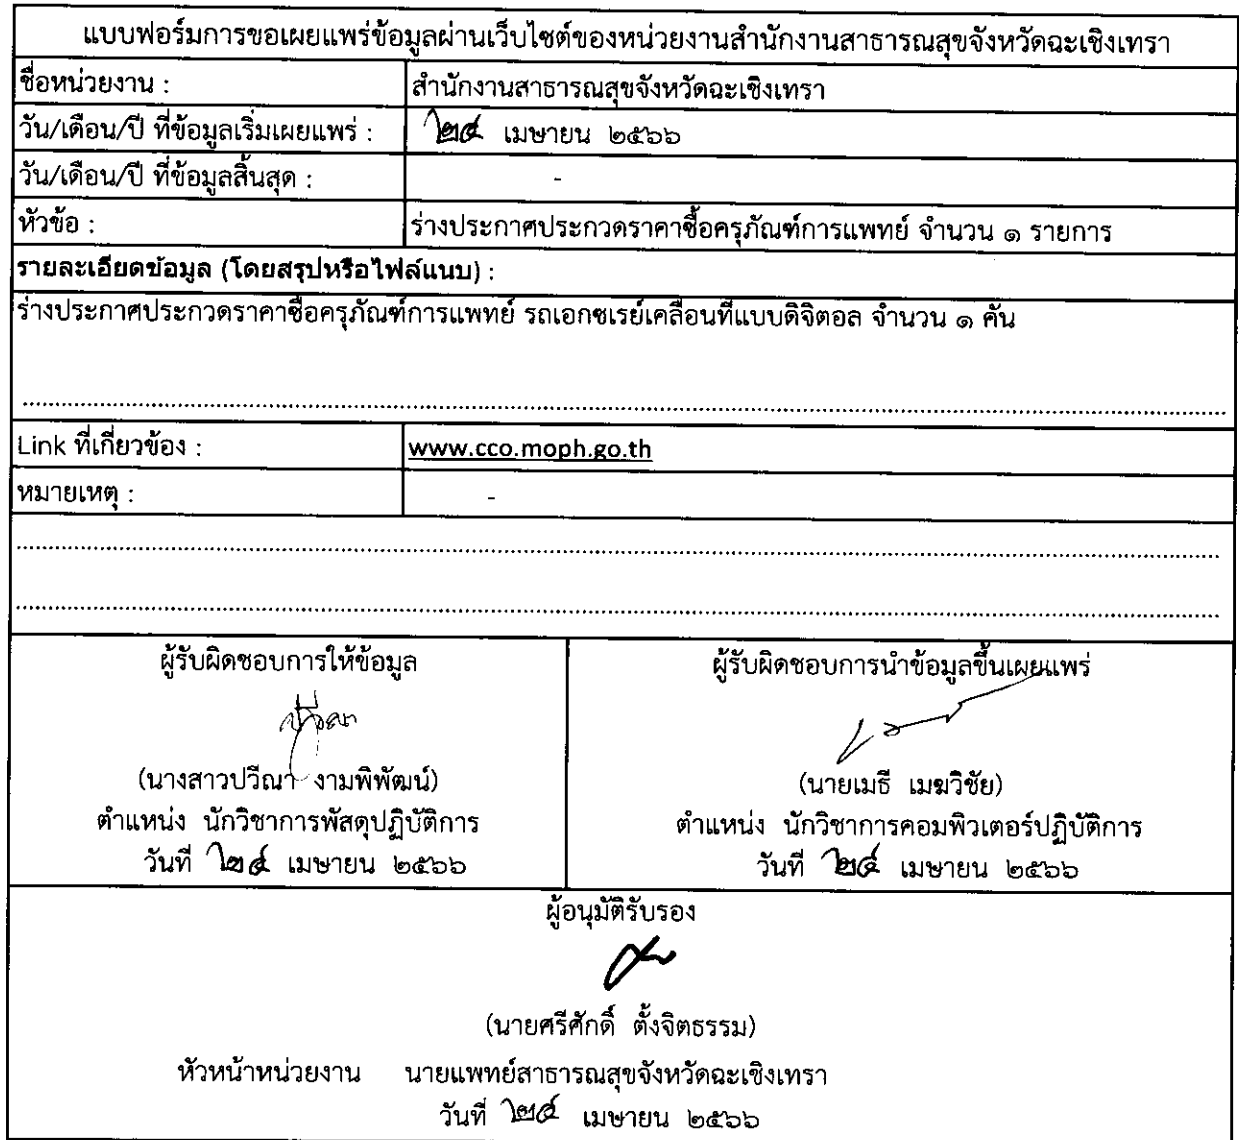 แบบฟอร์มการขอเผยแพร่ข้อมูลผ่านเว็บไซต์ของหน่วยงานสำนักงานสาธารณสุขจังหวัดฉะเชิงเทรา
ชื่อหน่วยงาน : สำนักงานสาธารณสุขจังหวัดฉะเชิงเทรา
วัน/เดือน/ปี ที่ข้อมูลเริ่มเผยแพร่ : ๒๔ เมษายน ๒๕๖๖
วัน/เดือน/ปี ที่ข้อมูลสิ้นสุด : -
หัวข้อ : ร่างประกาศประกวดราคาซื้อครุภัณฑ์การแพทย์ จำนวน ๑ รายการ
รายละเอียดข้อมูล (โดยสรุปหรือไฟล์แนบ) :
ร่างประกาศประกวดราคาซื้อครุภัณฑ์การแพทย์ รถเอกซเรย์เคลื่อนที่แบบดิจิตอล จำนวน ๑ คัน
Link ที่เกี่ยวข้อง : www.cco.moph.go.th
หมายเหตุ : -
ผู้รับผิดชอบการให้ข้อมูล
(นางสาวปวีณา งามพิพัฒน์)
ตำแหน่ง นักวิชาการพัสดุปฏิบัติการ
วันที่ ๒๔ เมษายน ๒๕๖๖
ผู้รับผิดชอบการนำข้อมูลขึ้นเผยแพร่
(นายเมธี เมฆวิชัย)
ตำแหน่ง นักวิชาการคอมพิวเตอร์ปฏิบัติการ
วันที่ ๒๔ เมษายน ๒๕๖๖
ผู้อนุมัติรับรอง
(นายศรีศักดิ์ ตั้งจิตธรรม)
หัวหน้าหน่วยงาน นายแพทย์สาธารณสุขจังหวัดฉะเชิงเทรา
วันที่ ๒๔ เมษายน ๒๕๖๖